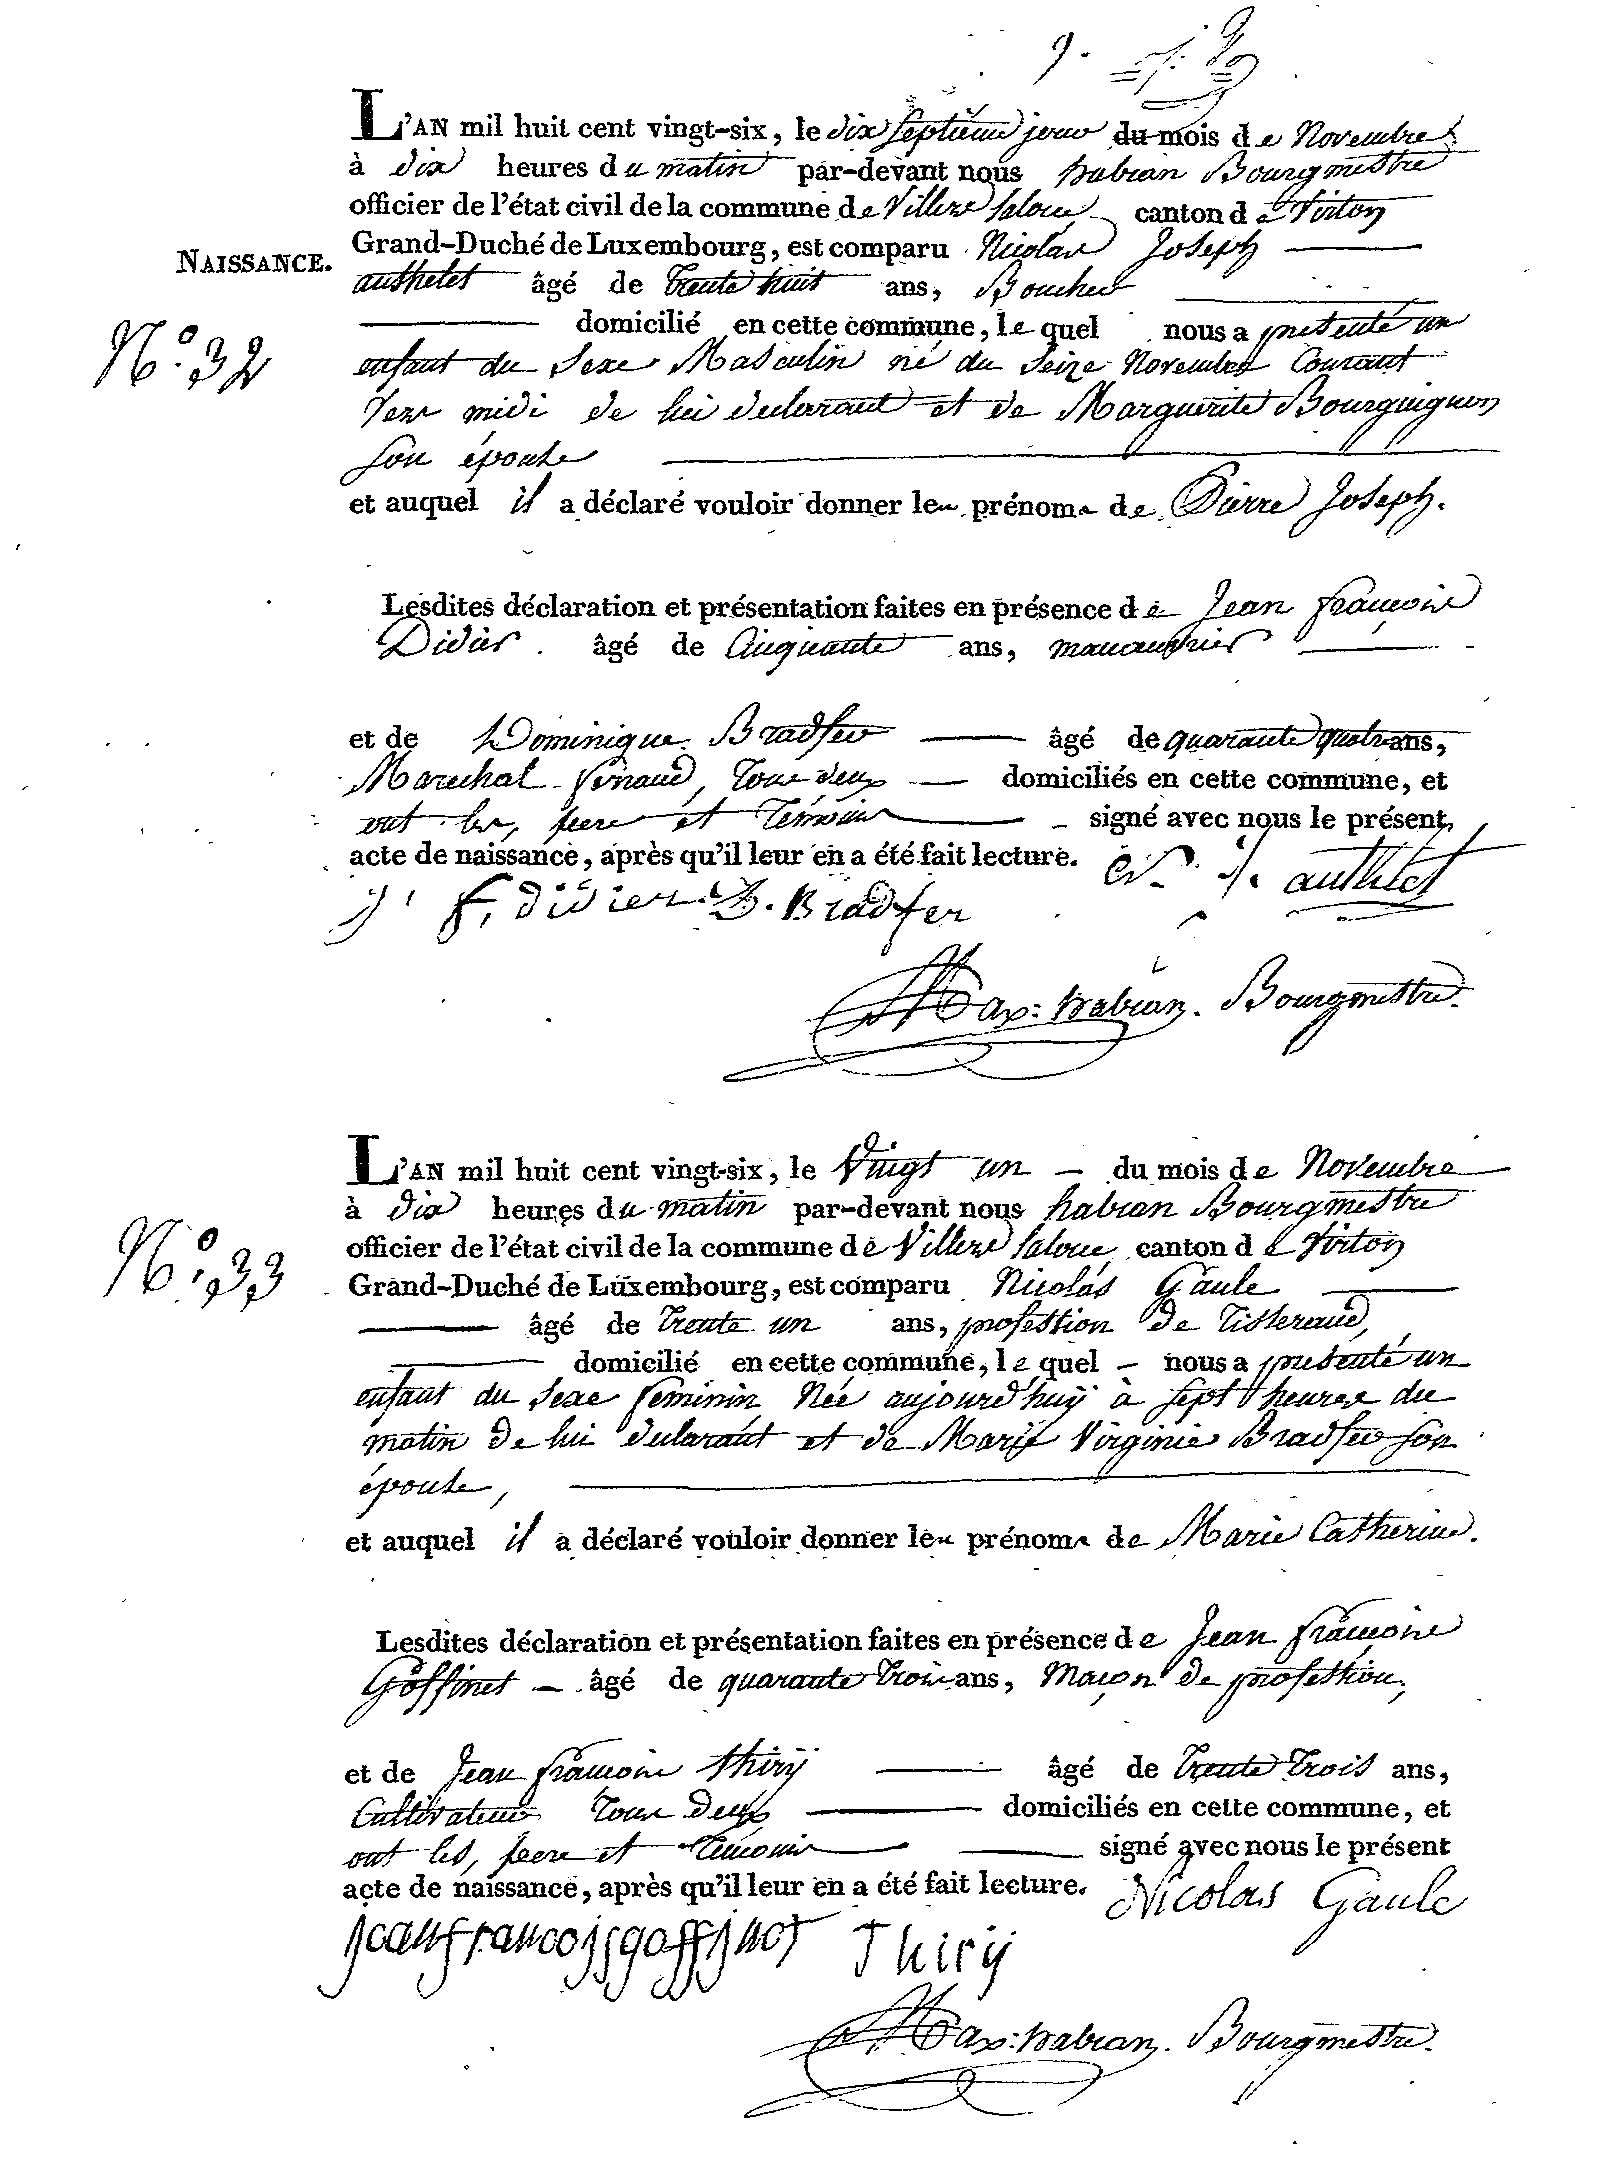 9.
L'AN mil huit cent vingt-six, le dix septieme jour du mois de Novembre
à dix heures du matin par-devant nous habran Bourgmestre
officier de l'état civil de la commune de Villers Laloue canton de Virton
Grand-Duché de Luxembourg, est comparu Nicolas Joseph
NAISSANCE.
authelet âgé de trente huit ans, Boucher
N.º 32
domicilié en cette commune, lequel nous a présenté un
enfant du Sexe Masculin né du Seize Novembre Courant
vers midi de lui déclarant et de Marguerite Bourguignon
son épouse
et auquel il a déclaré vouloir donner les prénoms de Pierre Joseph.
Lesdites déclaration et présentation faites en présence de Jean françois
Didier âgé de Cinquante ans, manouvrier
et de Dominique Bradfer âgé de quarante quatre ans,
Marechal ferrand, tous deux domiciliés en cette commune, et
ont les, pere et témoins signé avec nous le présent,
acte de naissance, après qu'il leur en a été fait lecture. N. J. authelet
J. F. didier D. Bradfer
Max: habran. Bourgmestre.
L'AN mil huit cent vingt-six, le Vingt un du mois de Novembre
à dix heures du matin par-devant nous habran Bourgmestre
N.º 33
officier de l'état civil de la commune de Villers Laloue, canton de Virton
Grand-Duché de Luxembourg, est comparu Nicolas Gaule
âgé de trente un ans, profession de tisserand,
domicilié en cette commune, lequel nous a présenté un
enfant du Sexe feminin Née aujourd'huÿ à sept heures du
matin de lui déclarant et de Marie Virginie Bradfer son
épouse,
et auquel il a déclaré vouloir donner les prénoms de Marie Catherine.
Lesdites déclaration et présentation faites en présence de Jean françois
Goffinet âgé de quarante trois ans, Maçon de profession,
et de Jean françois thirÿ âgé de trente trois ans,
Cultivateur tous deux domiciliés en cette commune, et
ont les, pere et témoins signé avec nous le présent
acte de naissance, après qu'il leur en a été fait lecture. Nicolas Gaule
jean francois goffinet Thirÿ
Max: habran. Bourgmestre.